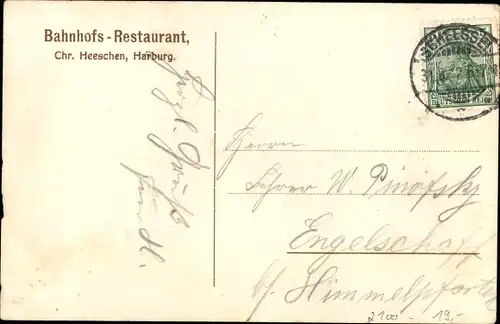 Bahnhofs-Restaurant,
Chr. Heeschen, Harburg.
Herzl. Gruß
SCHEESSEL
Herrn
Lehrer W. Pinofsky
Engelschoff
b/ Himmelpforten
2100 - 19,-